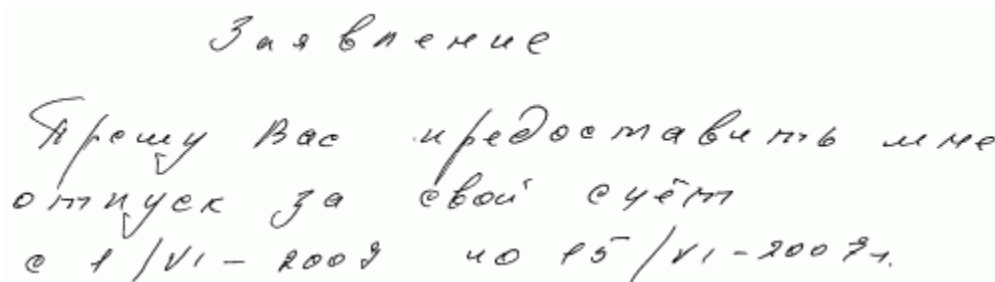 Заявление
Прошу Вас предоставить мне
отпуск за свой счёт
с 1/VI – 2007 по 15/VI – 2007г.